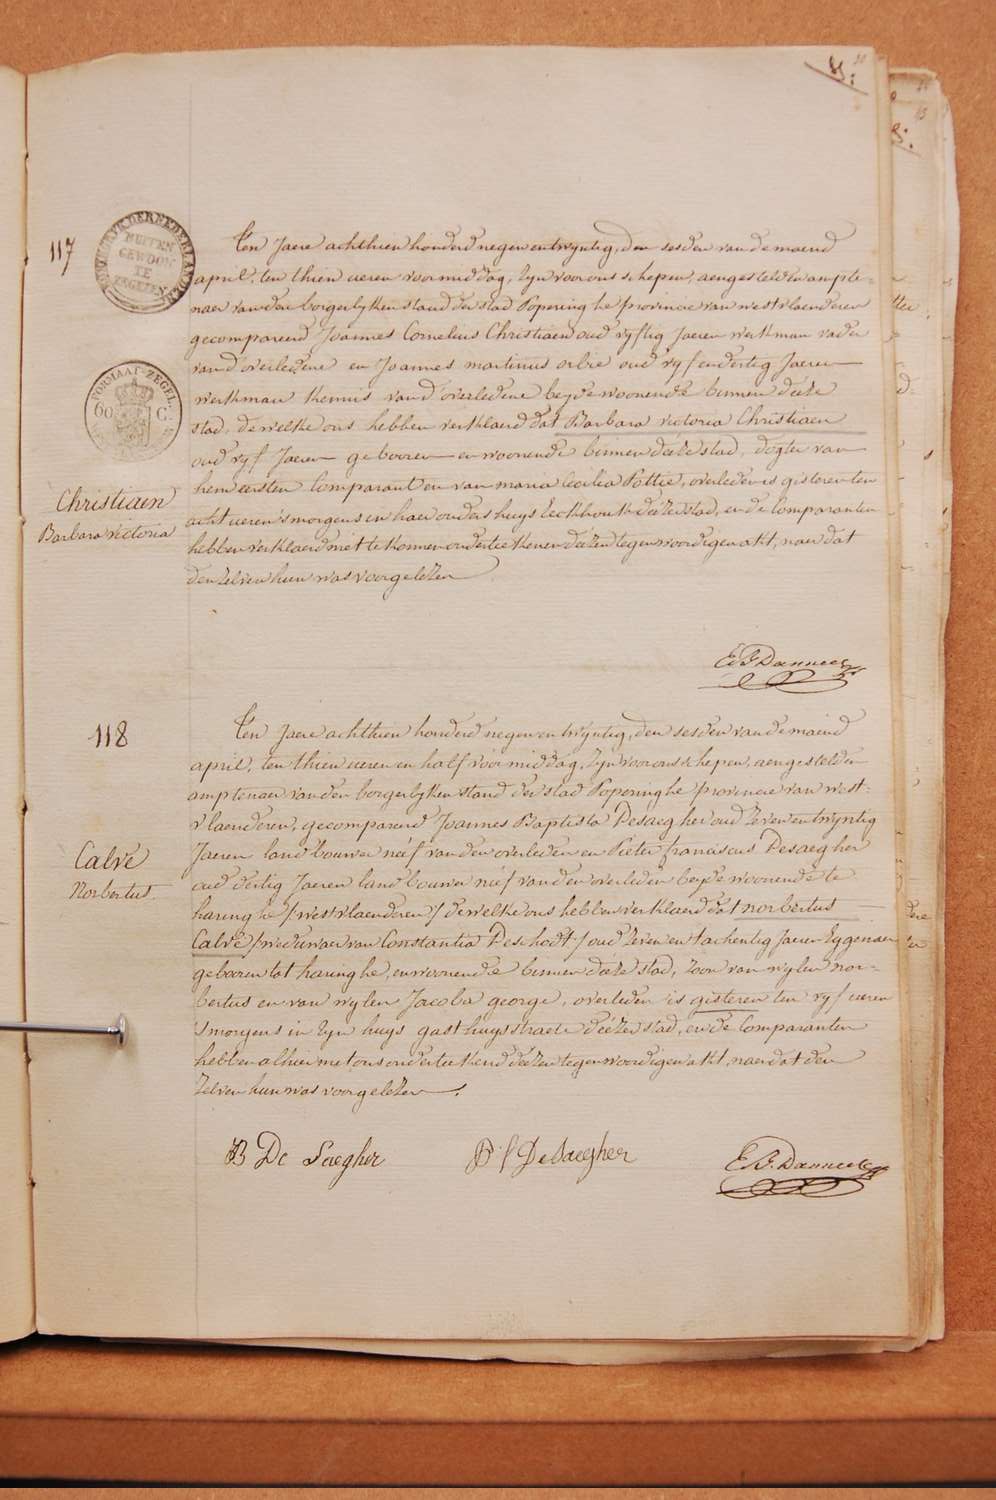 117
KONINGRYK DER NEDERLANDEN
BUITEN
GEWOON
TE
ZEGELEN
FORMAAT-ZEGEL
60 C.
Christiaen
Barbara victoria
Ten Jaere achthien honderd negen en twyntig, den sesden van de maend
april, ten thien ueren voormiddag, Zyn voor ons schepen, aengestelden ampte-
naer van den borgerlyken stand der stad Poperinghe provincie van westvlaenderen
gecompareerd Joannes Cornelius Christiaen oud vyftig Jaeren werkman vader
van d'overledene en Joannes martinus orbie oud vyf en dertig Jaeren
werkman kennis van d'overledene beyde woonende binnen deeze
stad, de welke ons hebben verklaerd dat Barbara victoria Christiaen
oud vyf Jaeren gebooren en woonende binnen deeze stad, dogter van
hem eersten Comparant en van maria Cecilia Pottie, overleden is gisteren ten
acht ueren 's morgens in haer ouders huys Eeckhoutk deezer stad, en de Comparanten
hebben verklaerd niet te konnen onderteekenen deezen tegenwoordigen akt, naer dat
den Zelven hun was voorgelezen
118
Calve
Norbertus.
Ten Jaere achthien honderd negen en twyntig, den sesden van de maend
april, ten thien ueren en half voormiddag, Zyn voor ons schepen, aengestelden
amptenaer van den borgerlyken stand der stad Poperinghe provincie van west-
vlaenderen, gecompareerd Joannes Baptista Desaegher oud Zeven en twyntig
Jaeren landbouwer neef van den overleden en Pieter franciscus Desaegher
oud dertig Jaeren landbouwer neef van den overleden beyde woonende te
haringhe /westvlaenderen/ de welke ons hebben verklaerd dat norbertus
Calve /weduwaer van Constantia Deschodt/ oud Zeven en tachentig Jaeren Eygenaer
gebooren tot haringhe, en woonende binnen deeze stad, Zoon van wylen nor-
bertus en van wylen Jacoba george, overleden is gisteren ten vyf ueren
's morgens in Zyn huys gasthuysstraete deezer stad, en de Comparanten
hebben alhier met ons onderteekend deezen tegenwoordigen akt, naer dat den
Zelven hun was voorgelezen.
B De Saegher
P f DeSaegher